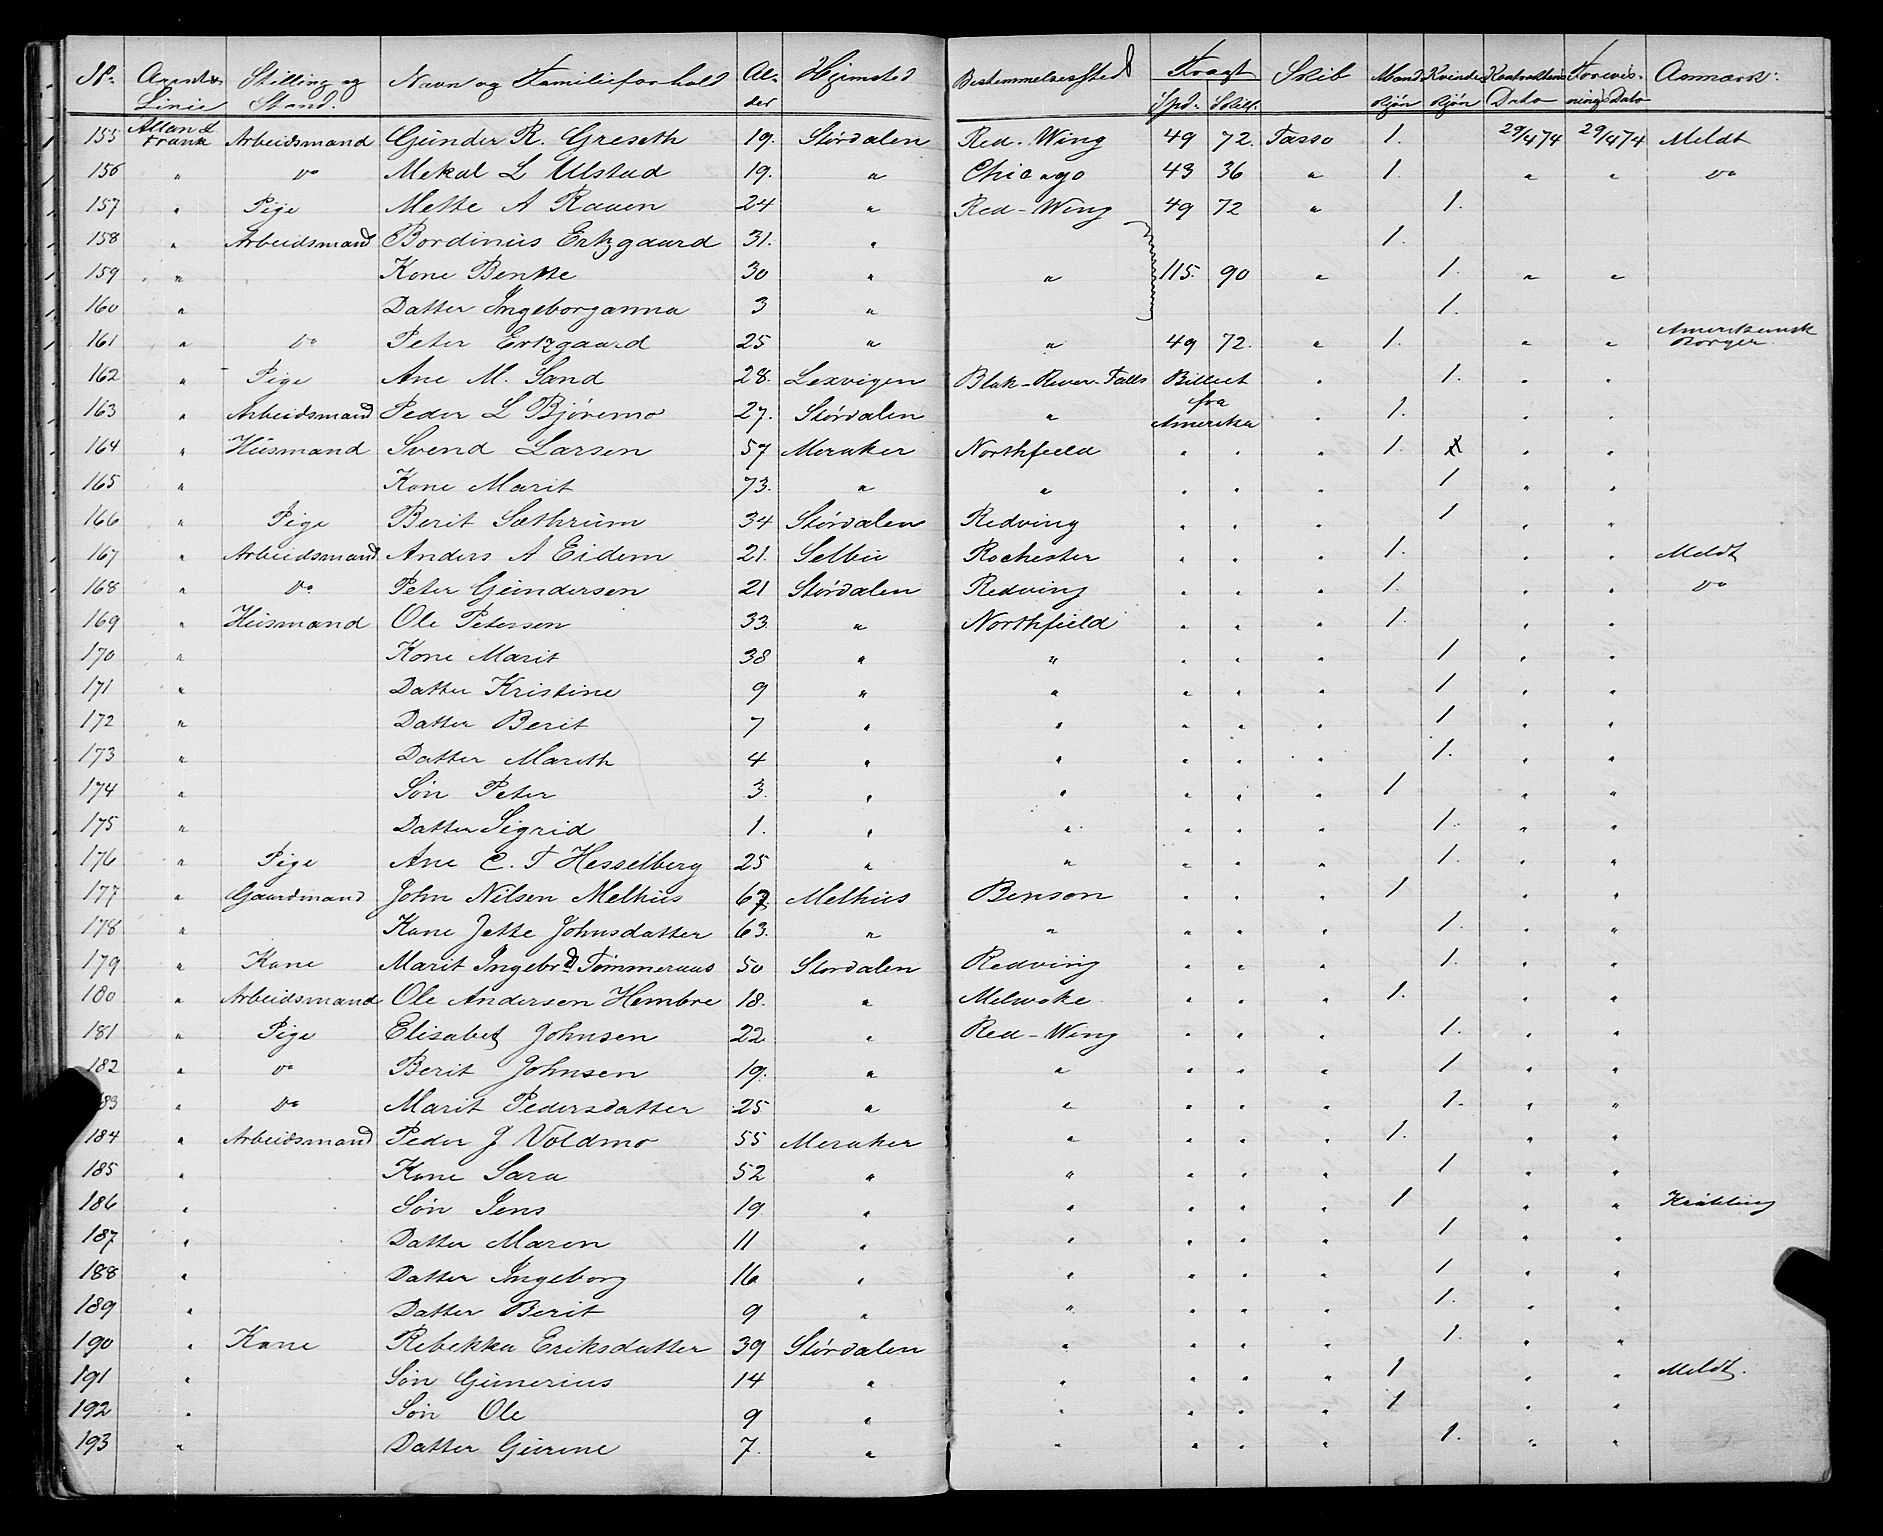 No. Agent & Linie Stilling og Stand. Navn og Familieforhold Alder Hjemsted Bestemmelsessted Fragt Spd. Skill. Skib Mandkjøn Kvindekjøn Kontraktens Dato Forevisnings Dato Anmærk:
155 Allan & Frank Arbeidsmand Gunder R. Greseth 19. Størdalen Red-Wing 49 72. Tasso 1. 29/4 74 29/4 74 Meldt
156 " Do Mekal L Ulstad 19. " Chicago 43 36 " 1. " " Do
157 " Pige Mette A Raaen 24 " Red-Wing 49 72 " 1.
158 " Arbeidsmand Bordinus Ertzgaard 31. " 1.
159 " Kone Bentte 30 " " 115. 90 " 1. " "
160 " Datter Ingeborganna 3 " 1.
161 " Do Peter Ertzgaard 25 " " 49 72. " 1. " " Amerikansk Borger.
162 " Pige Ane M. Sand 28. Lexvigen Blak-River-Falls Billeet " 1. " "
163 " Arbeidsmand Peder L Bjøremo 27. Størdalen " fra Amerika " 1. " "
164 " Husmand Svend Larsen 57 Meraker Northfield " " " 1. " "
165 " Kone Marit 73. " " " " " 1 " "
166 " Pige Berit Sæthrum 34 Størdalen Redving " " " 1 " "
167 " Arbeidsmand Anders A Eidem 21. Selbu Rochester " " " 1. " " Meldt
168 " Do Peter Gundersen 21 Størdalen Redving " " " 1. " " Do
169 " Husmand Ole Petersen 33. " Northfield " " " 1. " "
170 " Kone Marit 38 " " " " " 1 " "
171 " Datter Kristine 9 " " " " " 1 " "
172 " Datter Berit 7 " " " " " 1 " "
173 " Datter Marith 4 " " " " " 1. " "
174 " Søn Peter 3. " " " " " 1 " "
175 " Datter Sigrid 1. " " " " " 1. " "
176 " Pige Ane C. T Hesselberg 25 " " " " " 1. " "
177 " Gaardmand John Nilsen Melhus 67 Melhus Benson " " " 1 " "
178 " Kone Jette Johnsdatter 63. " " " " " 1. " "
179 " Kone Marit Ingebrd. Tømmeraas 50 Stordalen Redving " " " 1. " "
180 " Arbeidsmand Ole Andersen Hembre 18. " Melwoke " " " 1. " "
181 " Pige Elisabet Johnsen 22 " Red-Wing " " " 1. " "
182 " Do Berit Johnsen 19. " " " " " 1 " "
83 " Do Marit Pedersdatter 25 " " " " " 1. " "
184 " Arbeidsmand Peder J Voldmo 55 Meraker " " " " 1. " "
185 " Kone Sara 52 " " " " " 1 " "
186 " Søn Jens 19 " " " " " 1 " "
187 " Datter Maren 11 " " " " " 1 " "
188 " Datter Ingeborg 16 " " " " " 1 " "
189 " Datter Berit 9 " " " " " 1. " "
190 " Kone Rebekka Eriksdatter 39 Størdalen " " " " 1. " "
191 " Søn Gunerius 14 " " " " " 1 " " Meldt.
192 " Søn Ole 9 " " " " " 1 " "
193 " Datter Gurine 7. " " " " " 1. " "